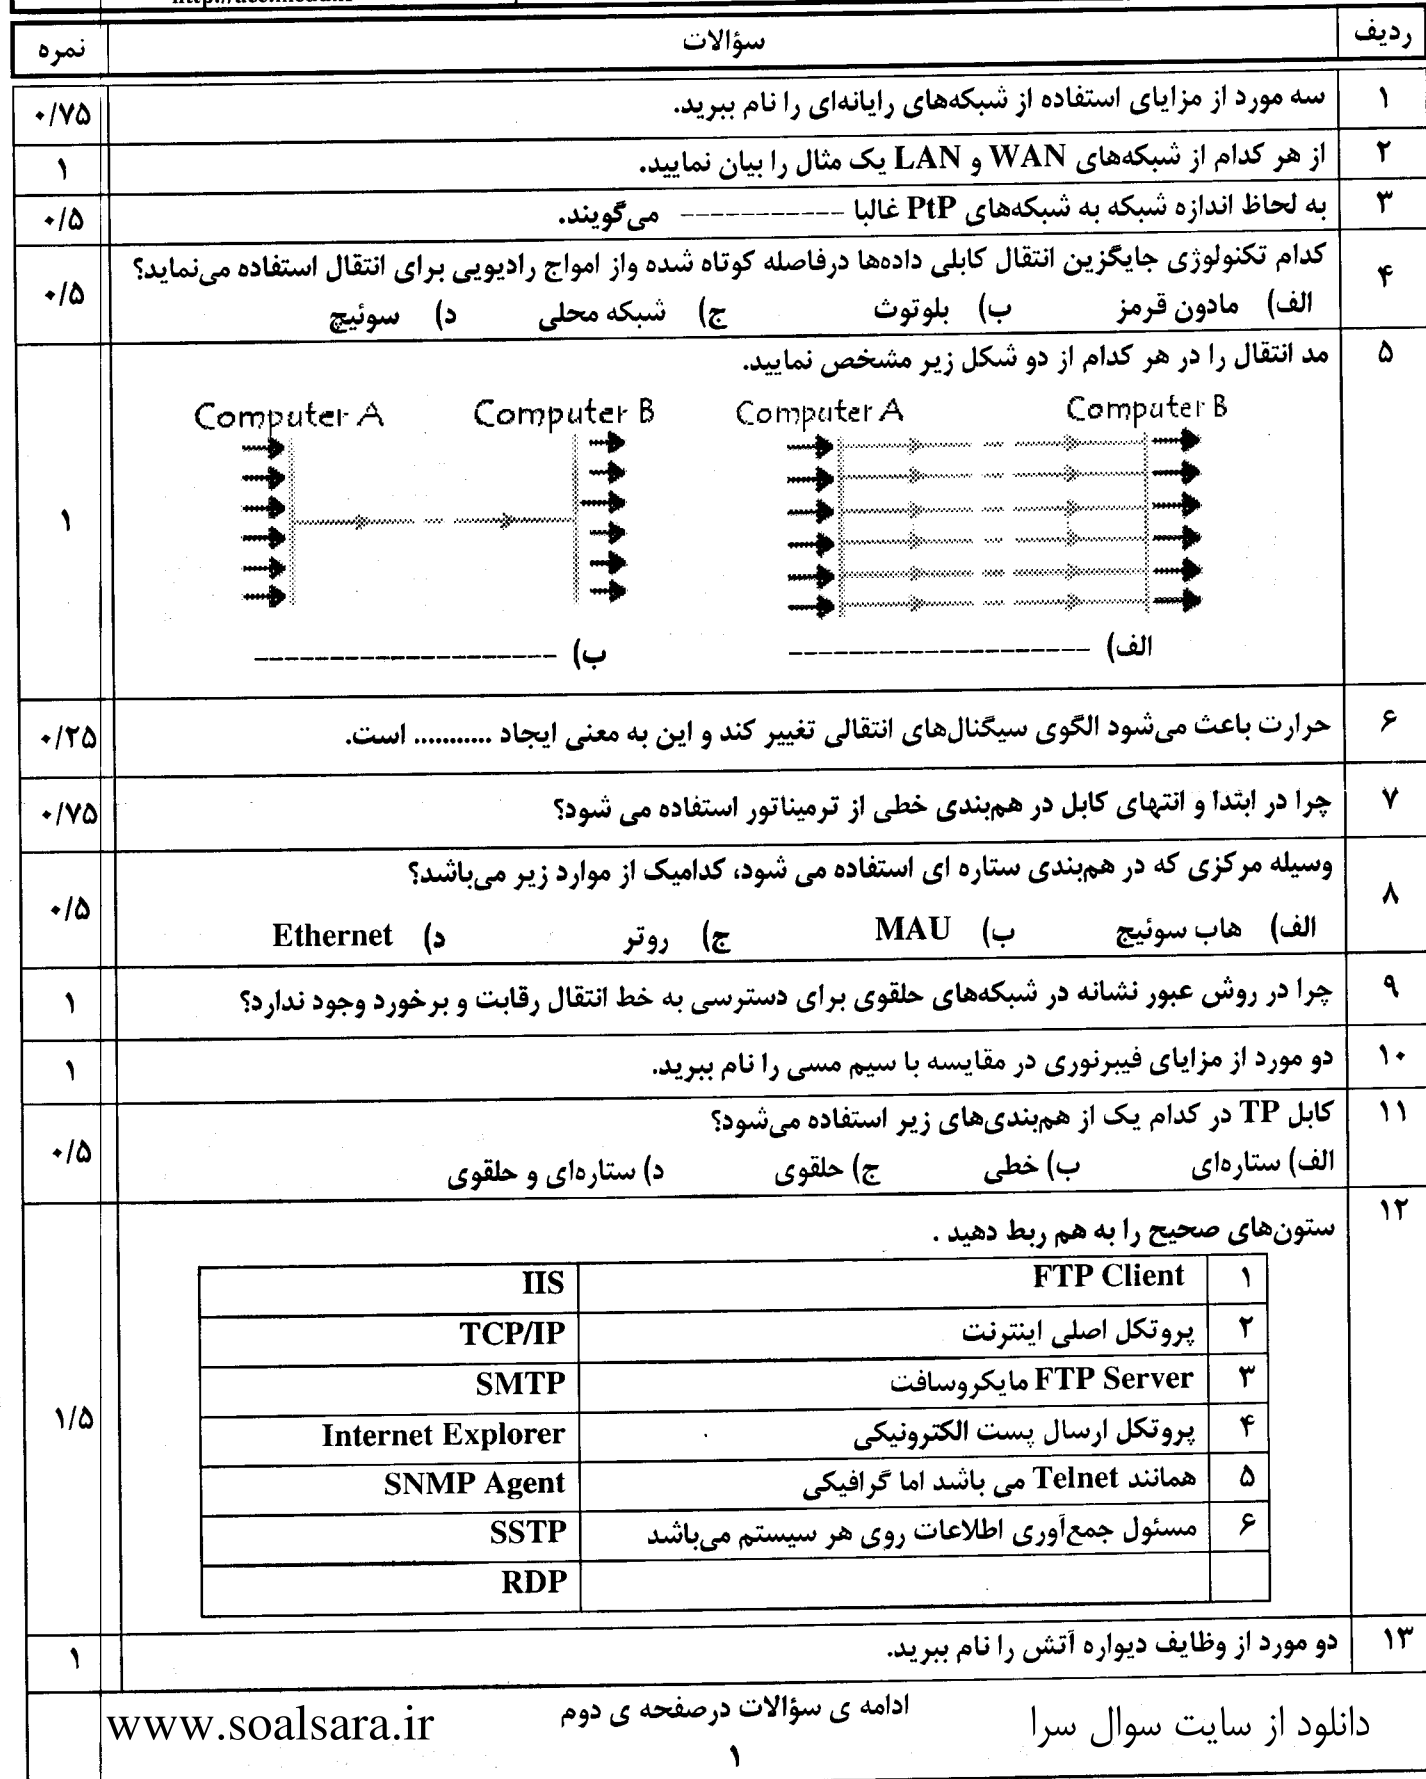 ردیف سؤالات نمره
۱ سه مورد از مزایای استفاده از شبکه‌های رایانه‌ای را نام ببرید. ۰/۷۵
۲ از هر کدام از شبکه‌های WAN و LAN یک مثال را بیان نمایید. ۱
۳ به لحاظ اندازه شبکه به شبکه‌های PtP غالبا ------------ می‌گویند. ۰/۵
۴ کدام تکنولوژی جایگزین انتقال کابلی داده‌ها درفاصله کوتاه شده واز امواج رادیویی برای انتقال استفاده می‌نماید؟ ۰/۵
الف) مادون قرمز ب) بلوتوث ج) شبکه محلی د) سوئیچ
۵ مد انتقال را در هر کدام از دو شکل زیر مشخص نمایید. ۱
Computer A Computer B Computer A Computer B
الف) -------------------- ب) --------------------
۶ حرارت باعث می‌شود الگوی سیگنال‌های انتقالی تغییر کند و این به معنی ایجاد ........... است. ۰/۲۵
۷ چرا در ابتدا و انتهای کابل در هم‌بندی خطی از ترمیناتور استفاده می شود؟ ۰/۷۵
۸ وسیله مرکزی که در هم‌بندی ستاره ای استفاده می شود، کدامیک از موارد زیر می‌باشد؟ ۰/۵
الف) هاب سوئیچ ب) MAU ج) روتر د) Ethernet
۹ چرا در روش عبور نشانه در شبکه‌های حلقوی برای دسترسی به خط انتقال رقابت و برخورد وجود ندارد؟ ۱
۱۰ دو مورد از مزایای فیبرنوری در مقایسه با سیم مسی را نام ببرید. ۱
۱۱ کابل TP در کدام یک از هم‌بندی‌های زیر استفاده می‌شود؟ ۰/۵
الف) ستاره‌ای ب) خطی ج) حلقوی د) ستاره‌ای و حلقوی
۱۲ ستون‌های صحیح را به هم ربط دهید . ۱/۵
۱ FTP Client IIS
۲ پروتکل اصلی اینترنت TCP/IP
۳ FTP Server مایکروسافت SMTP
۴ پروتکل ارسال پست الکترونیکی Internet Explorer
۵ همانند Telnet می باشد اما گرافیکی SNMP Agent
۶ مسئول جمع‌آوری اطلاعات روی هر سیستم می‌باشد SSTP
RDP
۱۳ دو مورد از وظایف دیواره آتش را نام ببرید. ۱
دانلود از سایت سوال سرا ادامه ی سؤالات درصفحه ی دوم www.soalsara.ir
۱